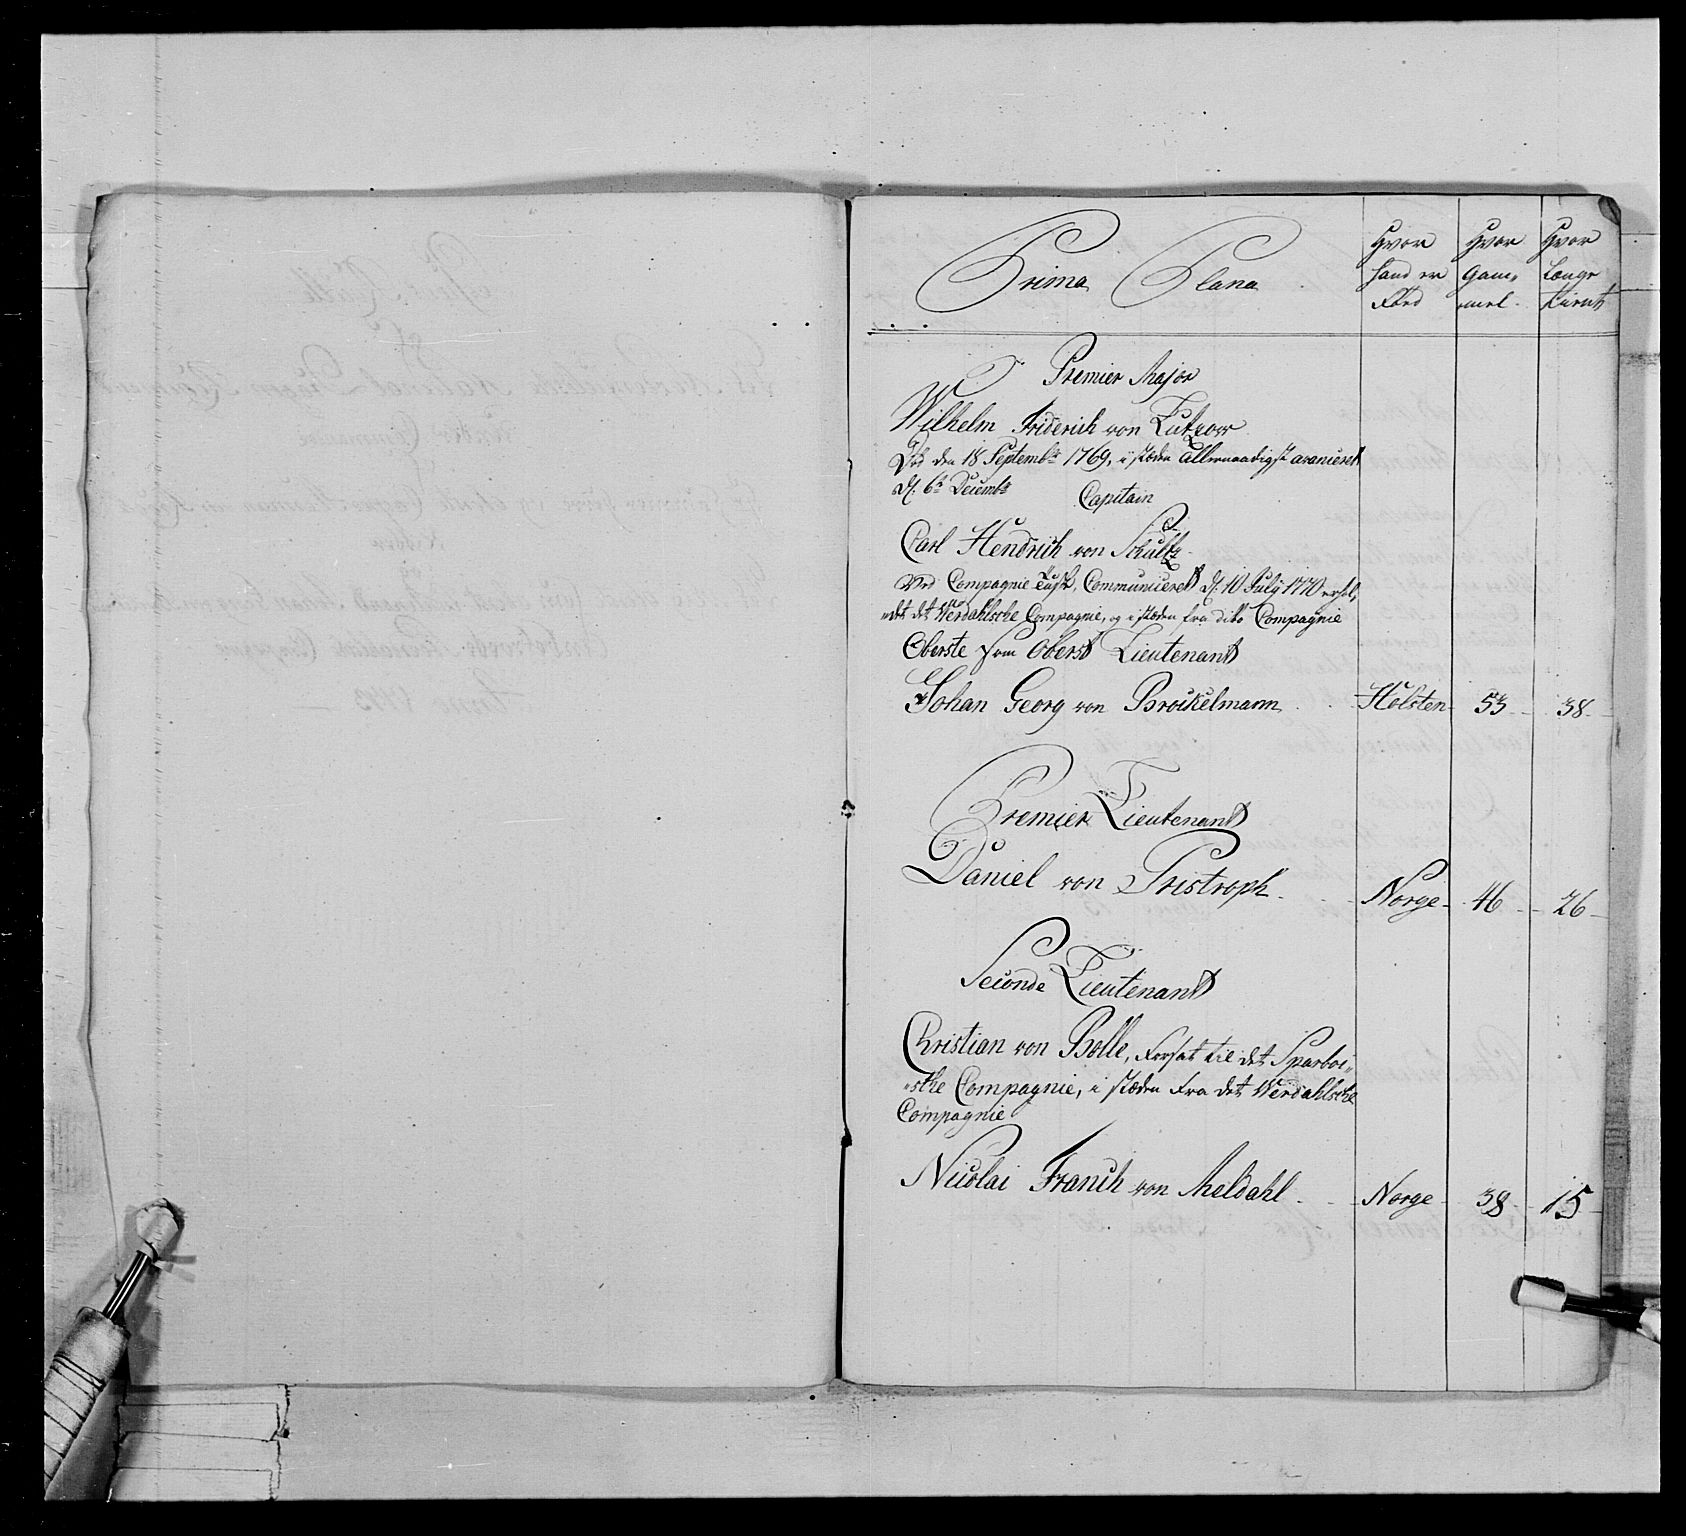 Prima Plana
Hvor hand er Fød
Hvor Gam-mel
Hvor Længe tient
Premier Major
Wilhelm Friderich von Lutzow
Død den 18 Septembr 1769, i stæden allernaadigst avanceret
d. 6te Decembr
Capitain
Carl Hendrich von Schultz
Ved Compagnie Communiceret d. 10 July 1770 erhol-
-det det Werdahlsche Compagnie, og i stæden fra dito Compagnie
Oberste som Oberst Lieutenant
Johan Georg von Brockelmann Holsten 53 38
Premier Lieutenant
Daniel von Pristroph Norge 46 26
Seconde Lieutenant
Christian von Bolle, Forsat til det Sparboi-
-sche Compagnie, i stæden Fra det Werdahlsche
Compagnie
Nicolai Franch von Meldahl Norge 38 15